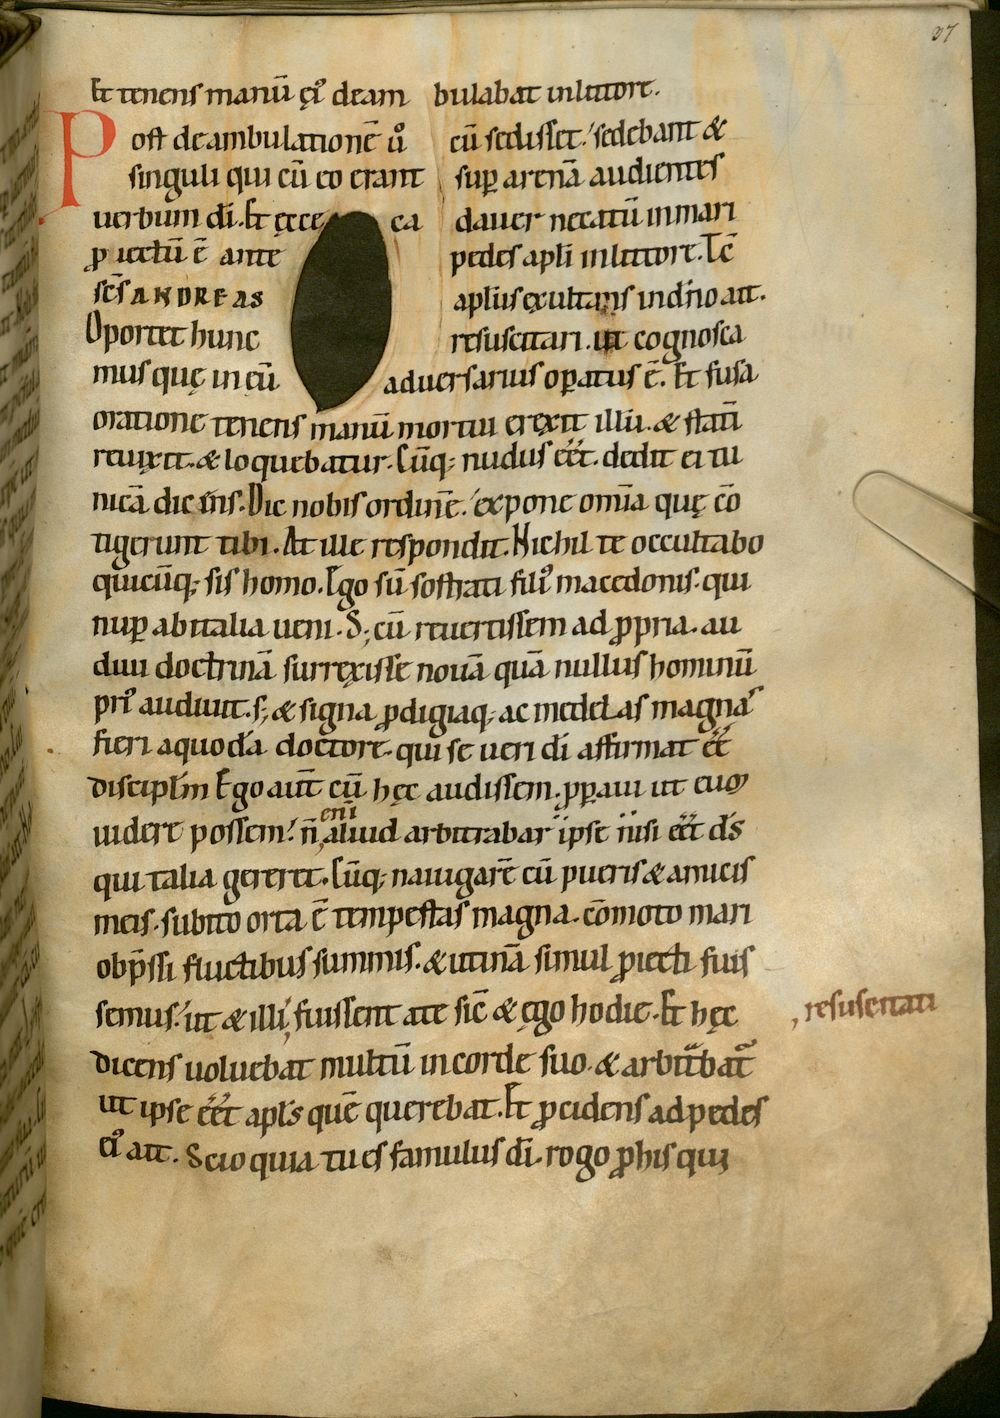 37
Et tenens manū ęiꝰ deam bulabat inlittore.
Post deambulationē ũ cū sedisset. sedebant &
singuli qui cū eo erant suꝑ arenā audientes
uerbum dī. Et ęcce ca dauer necatū inmari
ꝓiectū ē ante pedes apli inlittore. Tc̄
sc̄s ANDREAS aplūs exultans indño ait.
Oportet hunc resuscitari. ut cognosca
mus quę in eū aduersarius oꝑatus ē. Et fusa
oratione tenens manū mortui erexit illū. & statī
reuixit. & loquebatur. Cūq; nudus eēt. dedit ei tu
nicā dicēns. Dic nobis ordinē. expone omīa quę cō
tigerunt tibi. At ille respondit. Nichil te occultabo
quicūq; sis homo. Ego sū sostrati filiꝰ macedonis. qui
nuꝑ abitalia ueni. S; cū reuertissem ad ꝓpria. au
diui doctrinā surrexisse nouā quā nullus hominū
priꝰ audiuit. s; & signa ꝓdigiaq; ac medelas magnas
fieri aquodā doctore. qui se ueri dī affirmat eē
discipl̄m Ego aut̄ cū hęc audissem. ꝓꝑaui ut euꝫ
uidere possem. n̄ enī aliud arbitrabar ipse nisi eēt d̄s
qui talia gereret. Cūq; nauigarē cū pueris & amicis
meis. subito orta ē tempestas magna. cōmoto mari
obp̄ssi fluctibus summis. & utinā simul ꝓiecti fuis
semus. ut & illi, fuissent ate sic̄ & ęgo hodie. Et hęc
, resuscitati
dicens uoluebat multū incorde suo. & arbitᷓbatᷓ
ut ipse eēt apl̄s quē querebat. Et ꝓcidens adpedes
eiꝰ ait. Scio quia tu es famulus dī. rogo ꝓhis qui